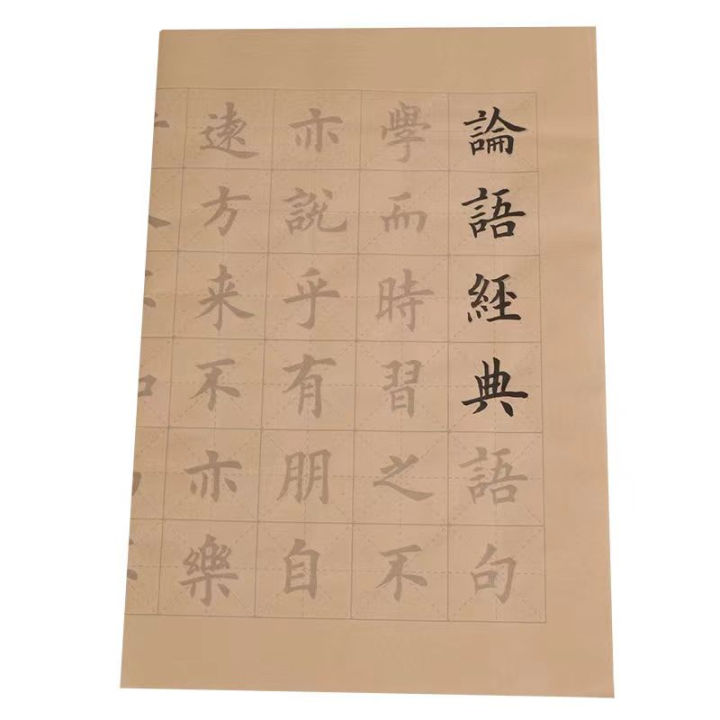 論語經典語句
學而時習之不
亦說乎有朋自
遠方来不亦樂